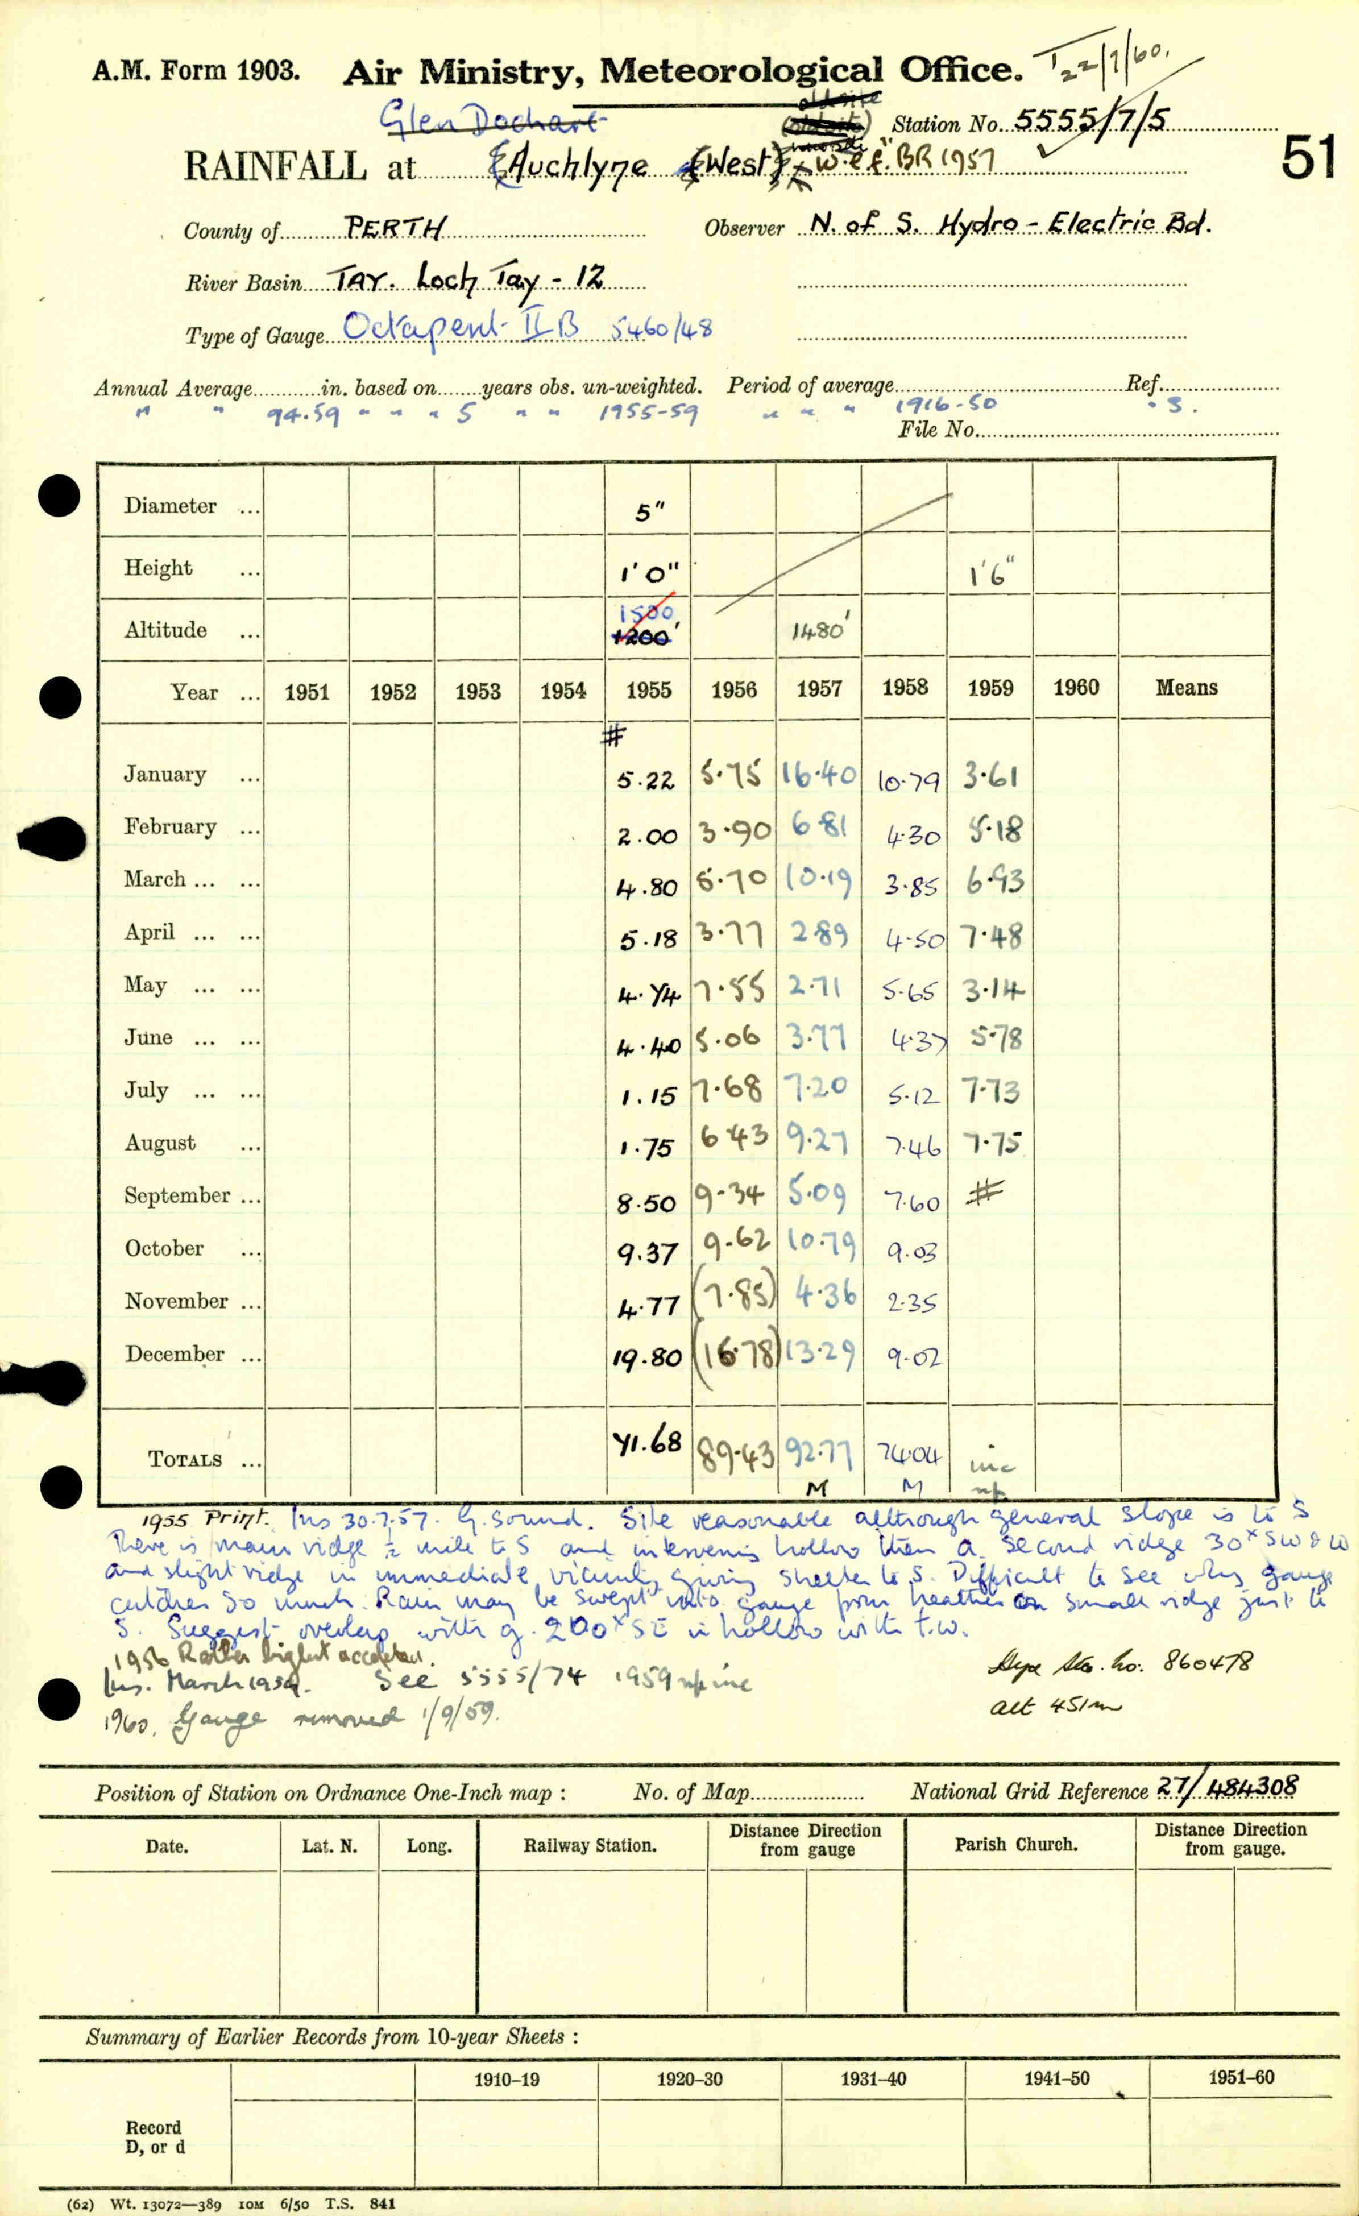 A.M. Form 1903. Air Ministry, Meteorological Office. T 22/7/60.
Glen Dochart
(old site) Station No. 5555/7/5
RAINFALL at (Auchlyne (West) w.e.f. BR 1957 51
County of PERTH Observer N. of S. Hydro-Electric Bd.
River Basin TAY. Loch Tay - 12
Type of Gauge Octapent II B 5460/48
Annual Average in. based on years obs. un-weighted. Period of average Ref.
" " 94.59 " " " 5 " " 1955-59 " " " 1916-50 " 3.
File No.
Diameter ... 5"
Height ... 1'0" 1'6"
1500
Altitude ... 1200' 1480'
Year ... 1951 1952 1953 1954 1955 1956 1957 1958 1959 1960 Means
#
January ... 5.22 5.75 16.40 10.79 3.61
February ... 2.00 3.90 6.81 4.30 5.18
March ... ... 4.80 5.70 10.19 3.85 6.93
April ... ... 5.18 3.77 2.89 4.50 7.48
May ... ... 4.74 7.55 2.71 5.65 3.14
June ... ... 4.40 5.06 3.77 4.37 5.78
July ... ... 1.15 7.68 7.20 5.12 7.73
August ... 1.75 6.43 9.27 7.46 7.75
September ... 8.50 9.34 5.09 7.60 #
October ... 9.37 9.62 10.79 9.03
November ... 4.77 (7.85) 4.36 2.35
December ... 19.80 (16.78) 13.29 9.02
TOTALS ... 71.68 89.43 92.77 74.04 inc
M M np
1955 Print. Ins 30.7.57. G. sound. Site reasonable although general slope is to S
There is main ridge ½ mile to S and intervening hollow then a second ridge 30x SW & W
and slight ridge in immediate vicinity giving shelter to S. Difficult to see why gauge
catches so much. Rain may be swept into gauge from heather on small ridge just to
S. Suggest overlap with g. 200x SE in hollow with t.w.
1956 Rather high but accepted.
Ins. March 1959. See 5555/74 1959 np inc
1960. Gauge removed 1/9/59.
Sta. No. 860478
alt 451m
Position of Station on Ordnance One-Inch map : No. of Map National Grid Reference 27/484308
Date. Lat. N. Long. Railway Station. Distance from gauge Direction Parish Church. Distance from gauge. Direction
Summary of Earlier Records from 10-year Sheets :
1910–19 1920–30 1931–40 1941–50 1951–60
Record
D, or d
(62) Wt. 13072—389 10M 6/50 T.S. 841